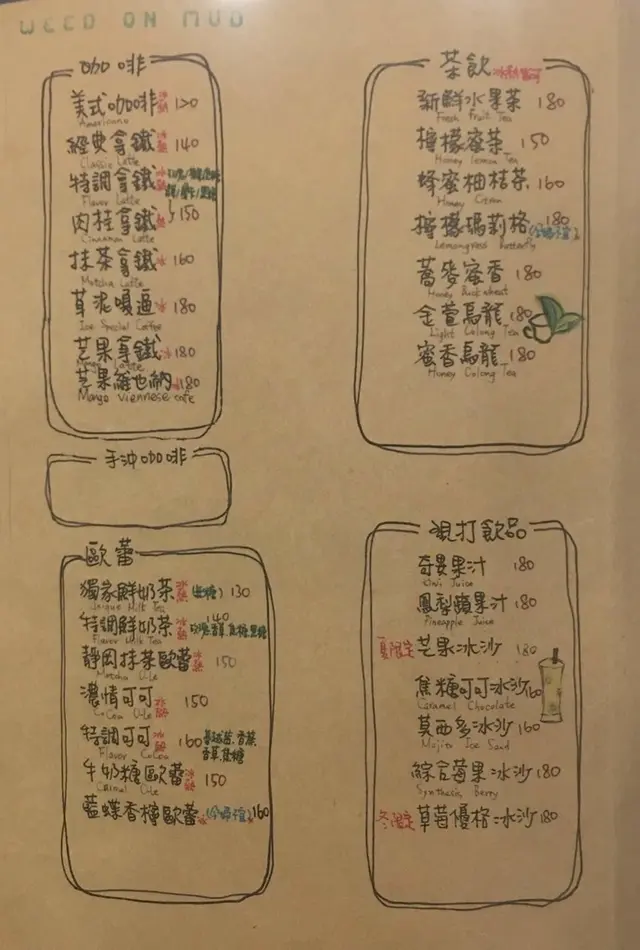 WEED ON MUD
咖啡
美式咖啡 冰熱 120
Americano
經典拿鐵 冰熱 140
Classic Latte
特調拿鐵 冰熱
Flavor Latte
肉桂拿鐵 冰熱 150
Cinnamon Latte
抹茶拿鐵 冰 160
Matcha Latte
草泥嘎逼 冰 180
Ice Special Coffee
芒果拿鐵 冰 180
Mango Latte
芒果維也納 冰 180
Mango Viennese Cafe
手沖咖啡
歐蕾
獨家鮮奶茶 冰熱 (無糖) 130
Unique Milk Tea
特調鮮奶茶 冰熱 140 玫瑰.香草.焦糖.黑糖
Flavor Milk Tea
靜岡抹茶歐蕾 冰熱 150
Matcha O-Le
濃情可可 冰熱 150
CoCoa O-Le
特調可可 冰熱 160 蔓越莓.香蕉.
香草.焦糖
Flavor CoCoa
牛奶糖歐蕾 冰熱 150
O-Le
藍蝶香檸歐蕾 冰 (孕婦不宜) 160
茶飲 冰熱皆可
新鮮水果茶 180
Fresh Fruit Tea
檸檬蜜茶 150
Honey Lemon Tea
蜂蜜柚桔茶 160
Honey Citron
檸檬瑪莉格 180
(孕婦不宜)
Lemongrass Butterfly
蕎麥蜜香 180
Honey Buckwheat
金萱烏龍 180
Light Oolong Tea
蜜香烏龍 180
Honey Oolong Tea
現打飲品
奇異果汁 180
Kiwi Juice
鳳梨蘋果汁 180
Pineapple Juice
夏限定 芒果冰沙 180
焦糖可可冰沙 160
Caramel Chocolate
莫西多冰沙 160
Mojito Ice Sand
綜合莓果冰沙 180
Synthesis Berry
冬限定 草莓優格冰沙 180